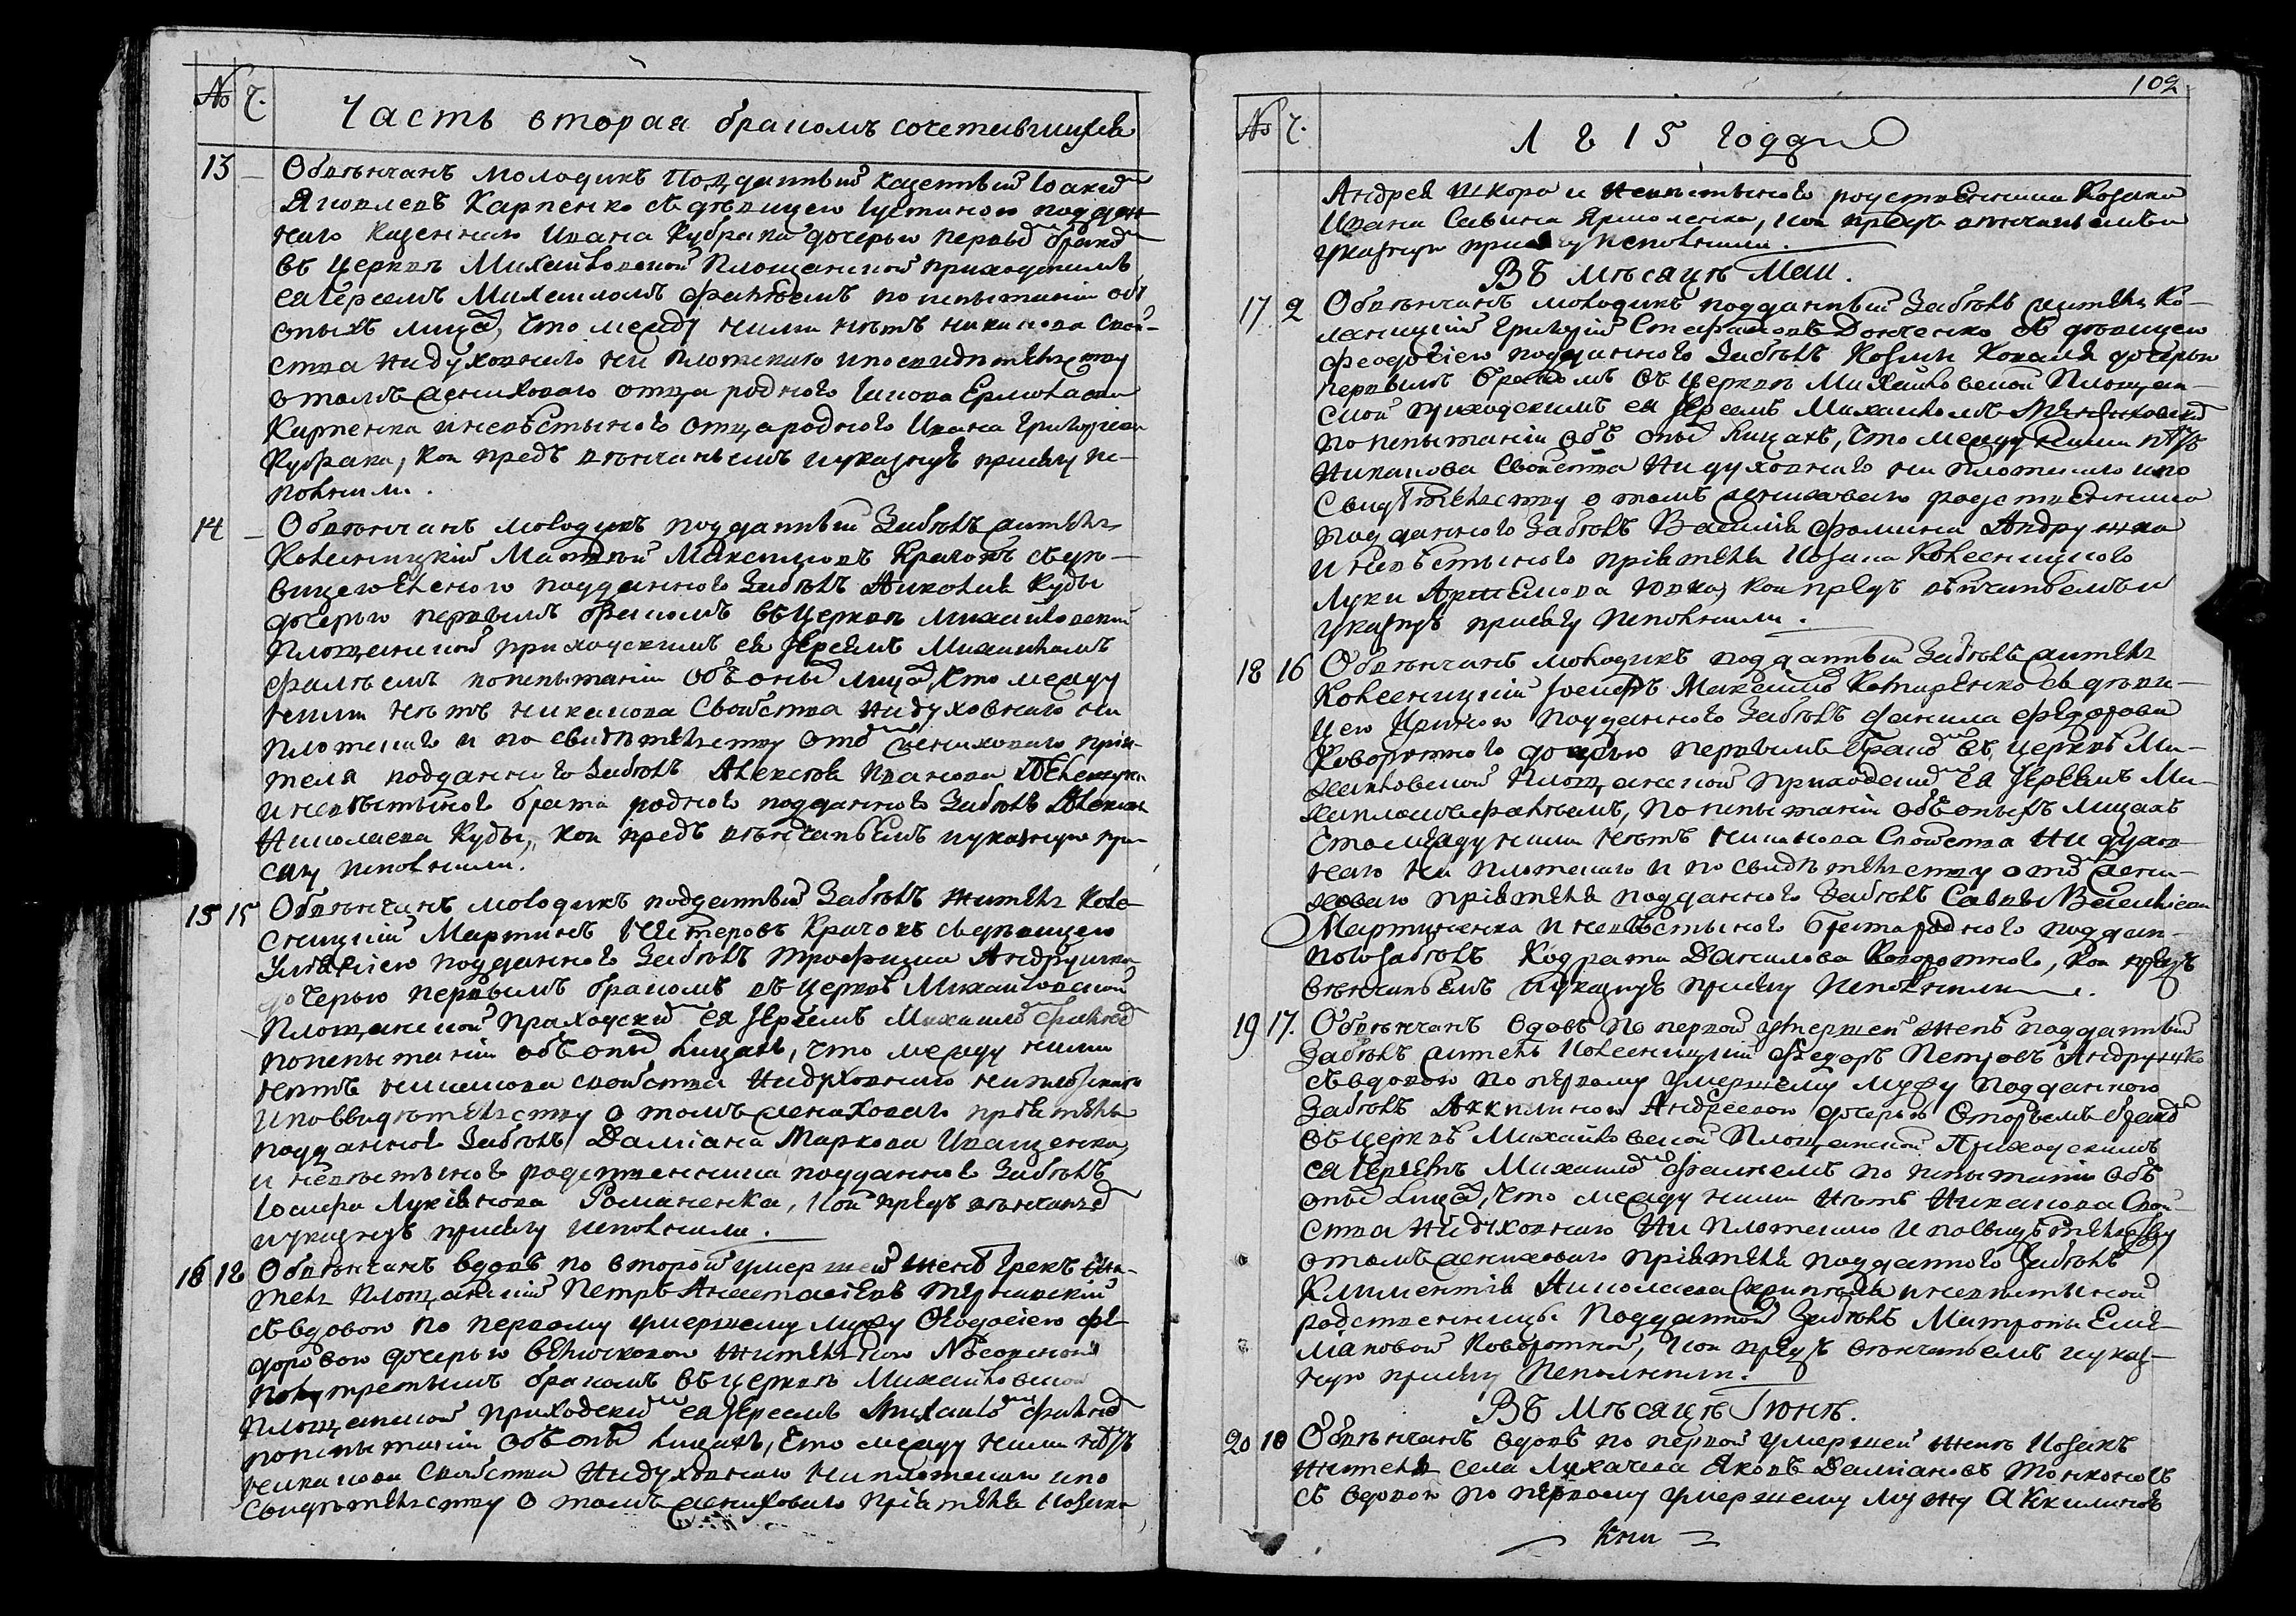 № Ч. Часть вторая бракомъ сочетавшихся
13 — Обвѣнчанъ молодикъ Подданный казенный Іоаким
Яковлевъ Карпенко съ дѣвицею Іустиною поддан-
наго казеннаго Ивана Кубрака дочерью первым браком
въ Церкви Михайловской Площанской приходскимъ
ея Іереемъ Михаиломъ по испытаніи объ
оныхъ лицах, что между ними нѣтъ никакова свой-
ства ни духовнаго ни плотскаго и по свидѣтельству
о томъ жениховаго отца родного Іакова Ермолаева
Карпенка и невѣстыного отца родного Ивана Григоріева
Кубрака, кои предъ вѣнчаньемъ и указную присягу ис-
полнили.
14 — Обвѣнчанъ молодикъ подданный Забѣлъ житель
Колесницкій Матвей Максимовъ Крачокъ съ дѣ-
вицею Еленою подданного Забѣлъ Николая Кубы
дочерью первымъ бракомъ въ Церкви Михайловской
Площанской приходскимъ ея Іереемъ Михаиломъ
по испытаніи объ оных лицах, что между
ними нѣтъ никакова свойства ни духовнаго ни
плотскаго и по свидѣтельству о том жениховаго прія-
теля подданного Забѣлъ Алексѣя Иванова
и невѣстыного брата родного подданного Забѣлъ
Николаева Кубы, кои предъ вѣнчаньемъ и указную при-
сягу исполнили.
15 15 Обвѣнчанъ молодикъ подданный Забѣлъ житель Коле-
сницкій Мартинъ Нестеровъ Крачокъ съ дѣвицею
подданного Забѣлъ Трофима Андрушка
дочерью первымъ бракомъ въ церквѣ Михайловской
Площанской Приходским ея Іереемъ Михаилом
по испытаніи объ оных лицахъ, что между ними
нѣтъ никакова свойства ни духовнаго ни плотскаго
и по свидѣтельству о томъ жениховаго пріятеля
подданного Забѣлъ Даміана Маркова Иващенка,
и невѣстыного родственника подданного Забѣлъ
Іосифа Лукіянова Романенка, кои предъ вѣнчаньем
и указную присягу исполнили.
16 18 Обвѣнчанъ вдовъ по второй умершей женѣ Грекъ жи-
тель Площанскій Петръ Анастасіевъ
съ вдовою по первому умершему мужу Феодосіею Фе-
доровою дочерью жителькою Носовскою
третьимъ бракомъ въ Церкви Михайловской
Площанской приходским ея Іереемъ Михаилом
по испытаніи объ оных лицахъ, что между ними нѣтъ
никакова свойства ни духовнаго ни плотскаго и по
свидѣтельству о томъ жениховаго пріятеля козака
102
№ Ч. 1815 года
Андрея Шкора и невѣстыного родственника козака
Ивана Савина Ярмоленка, кои предъ вѣнчаньемъ и
указную присягу исполнили.
Въ мѣсяцѣ Маи.
17 2 Обвѣнчанъ молодикъ подданный Забѣлъ житель Ко-
лесницкій Григорій Стефановъ Донченко съ дѣвицею
Феодосіею подданного Забѣлъ Козмы Коваля дочерью
первымъ бракомъ въ Церкви Михайловской Площан-
ской приходскимъ ея Іереемъ Михаиломъ
по испытаніи объ оных лицахъ, что между ними нѣтъ
никакова свойства ни духовнаго ни плотскаго и по
свидѣтельству о томъ жениховаго родственника
подданного Забѣлъ Василія Фомина Андрушка
и невѣстыного пріятеля козака Колесницкого
Луки Артемова Юрка, кои предъ вѣнчаньемъ и
указную присягу исполнили.
18 16 Обвѣнчанъ молодикъ подданный Забѣлъ житель
Колесницкій Іосифъ Максимов съ дѣви-
цею Іриною подданного Забѣлъ Данила Федорова
Коворотного дочерью первымъ браком въ церквѣ Ми-
хайловской Площанской приходским ея Іереемъ Ми-
хаиломъ, по испытаніи объ оныхъ лицахъ
что между ними нѣтъ никакова свойства ни духов-
наго ни плотскаго и по свидѣтельству о том жени-
ховаго пріятеля подданного Забѣлъ Савы Василіева
Мартиненка и невѣстыного брата родного поддан-
ного Забѣлъ Кодрата Данилова Коворотного, кои предъ
вѣнчаньемъ и указную присягу исполнили.
19 17. Обвѣнчанъ вдовъ по первой умершей женѣ подданный
Забѣлъ житель Колесницкій Федоръ Петровъ Андрушко
съ вдовою по первому умершему мужу подданного
Забѣлъ Аккилиною Андреевою дочерью вторымъ браком
въ церквѣ Михайловской Площанской Приходскимъ
ея Іереемъ Михаилом по испытаніи объ
оных лицах, что между ними нѣтъ никакова свой-
ства ни духовнаго ни плотскаго и по свидѣтельству
о томъ жениховаго пріятеля подданного Забѣлъ
Климентія Николаева и невѣстыной
родственницы подданной Забѣлъ Матроны Еми-
ліановой Коворотной, кои предъ вѣнчаньемъ и указ-
ную присягу исполнили.
Въ мѣсяцѣ Іюнѣ.
20 10 Обвѣнчанъ вдовъ по первой умершей женѣ козакъ
житель села Лихачева Яковъ Даміановъ Тонконогъ
съ вдовою по первому умершему мужу Аккилиною